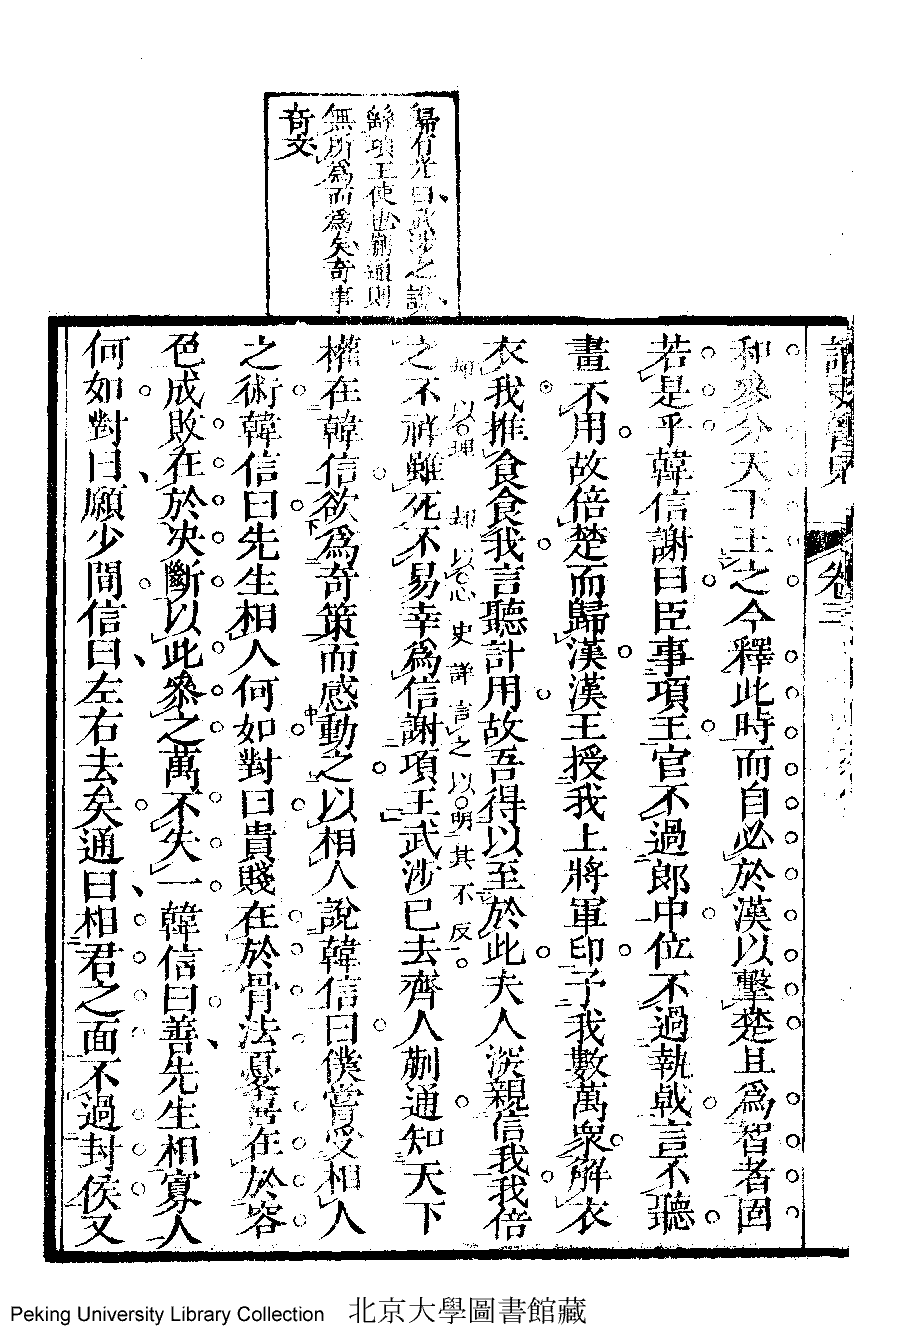 歸有光曰武涉之說
歸項王使也蒯通則
無所爲而爲矣奇事
奇文
卷三
和參分天下王之今釋此時而自必於漢以擊楚且爲智者固
若是乎韓信謝曰臣事項王官不過郎中位不過執戟言不聽
畫不用故倍楚而歸漢漢王授我上將軍印予我數萬衆解衣
衣我推食食我言聽計用故吾得以至於此夫人深親信我我倍
却以理 却以心 史詳言之以明其不反
之不祥雖死不易幸爲信謝項王武涉已去齊人蒯通知天下
權在韓信欲爲奇策而感動之以相人說韓信曰僕嘗受相人
之術韓信曰先生相人何如對曰貴賤在於骨法憂喜在於容
色成敗在於决斷以此參之萬不失一韓信曰善先生相寡人
何如對曰願少間信曰左右去矣通曰相君之面不過封侯又
Peking University Library Collection 北京大學圖書館藏